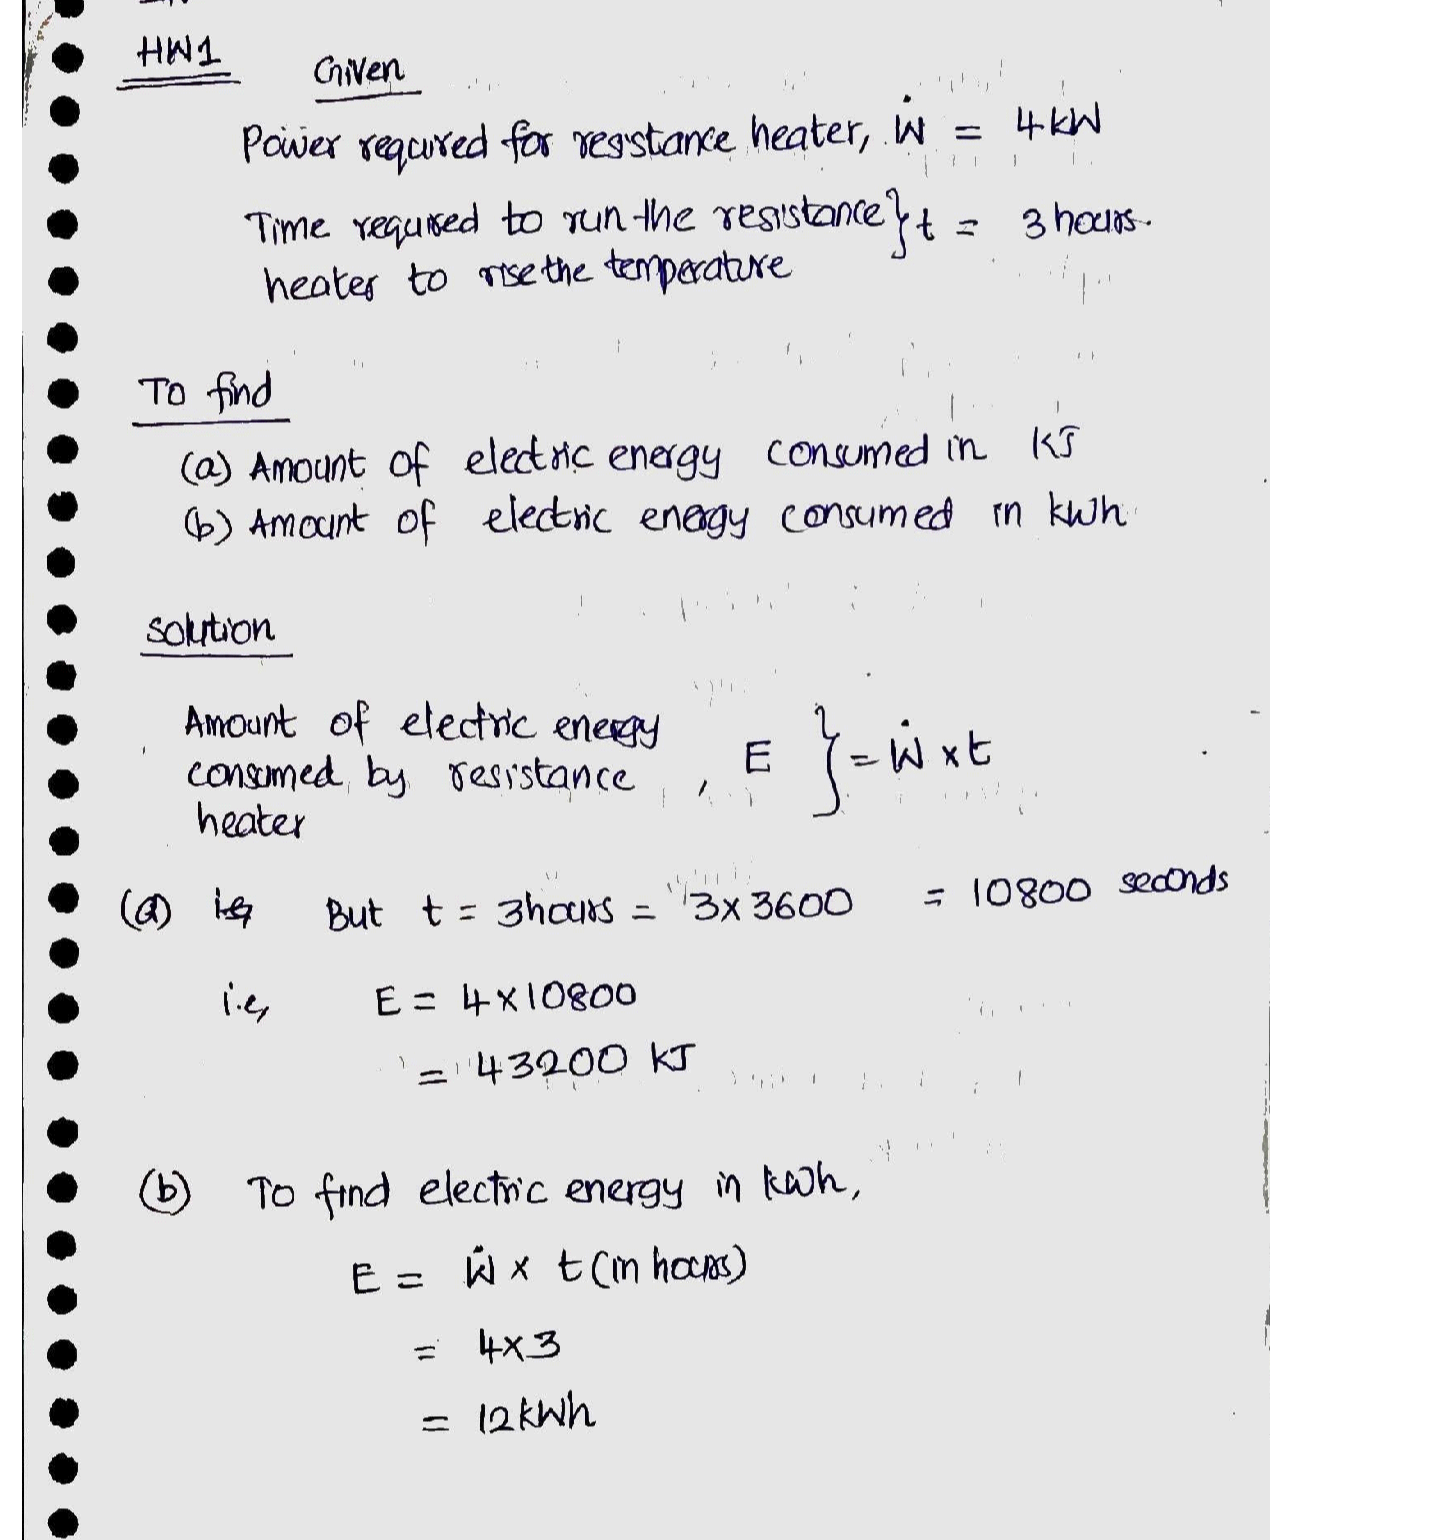 HW1
Given
Power required for resistance heater, Ẇ = 4 kW
Time required to run the resistance } t = 3 hours.
heater to rise the temperature
To find
(a) Amount of electric energy consumed in KJ
(b) Amount of electric energy consumed in kWh
Solution
Amount of electric energy
consumed by resistance , E } = Ẇ x t
heater
(a) But t = 3 hours = 3 x 3600 = 10800 seconds
i.e, E = 4 x 10800
= 43200 KJ
(b) To find electric energy in kWh,
E = Ẇ x t (in hours)
= 4x3
= 12 kWh